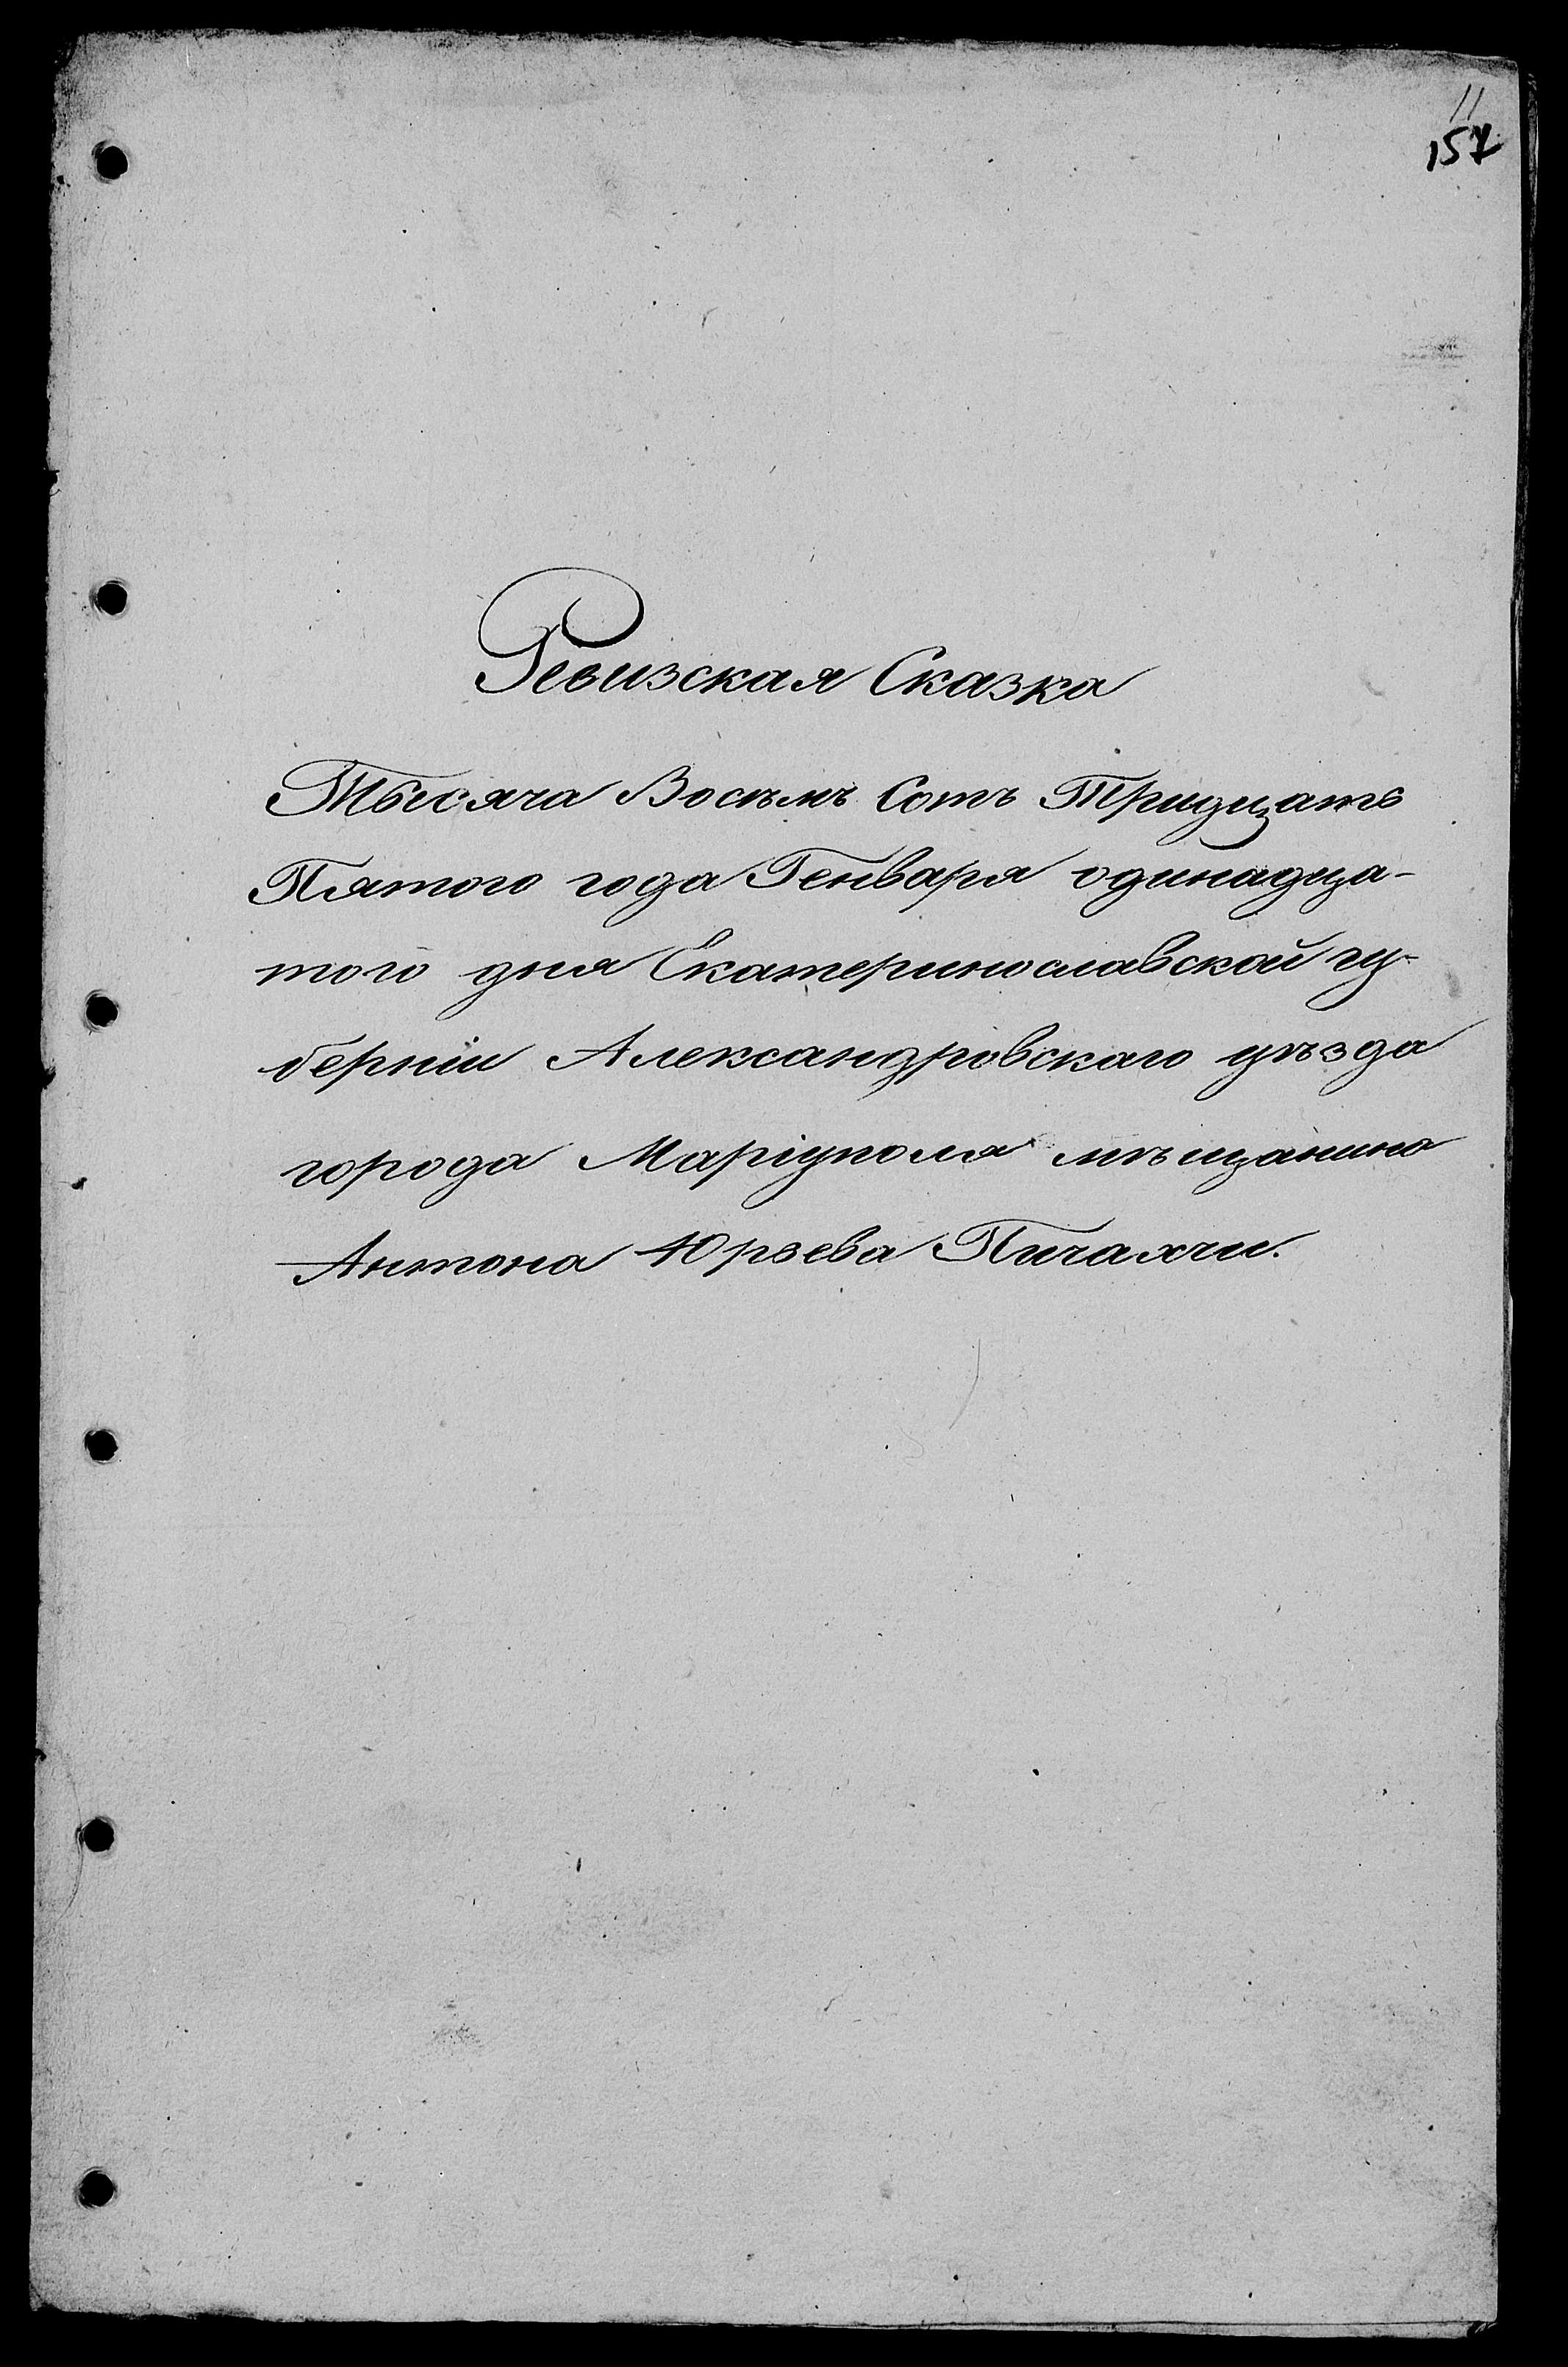 11
157
Ревизская Сказка
Тысяча Восѣмъ Сотъ Тридцать
Пятого года Генваря одинадца-
того дня Екатеринославской гу-
берніи Александровскаго уѣзда
города Маріуполя мѣщанина
Антона Юрьева Пичахчи.